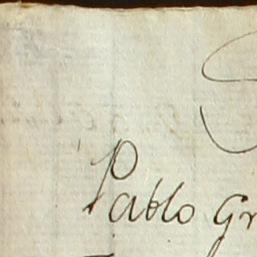 Pablo Gr